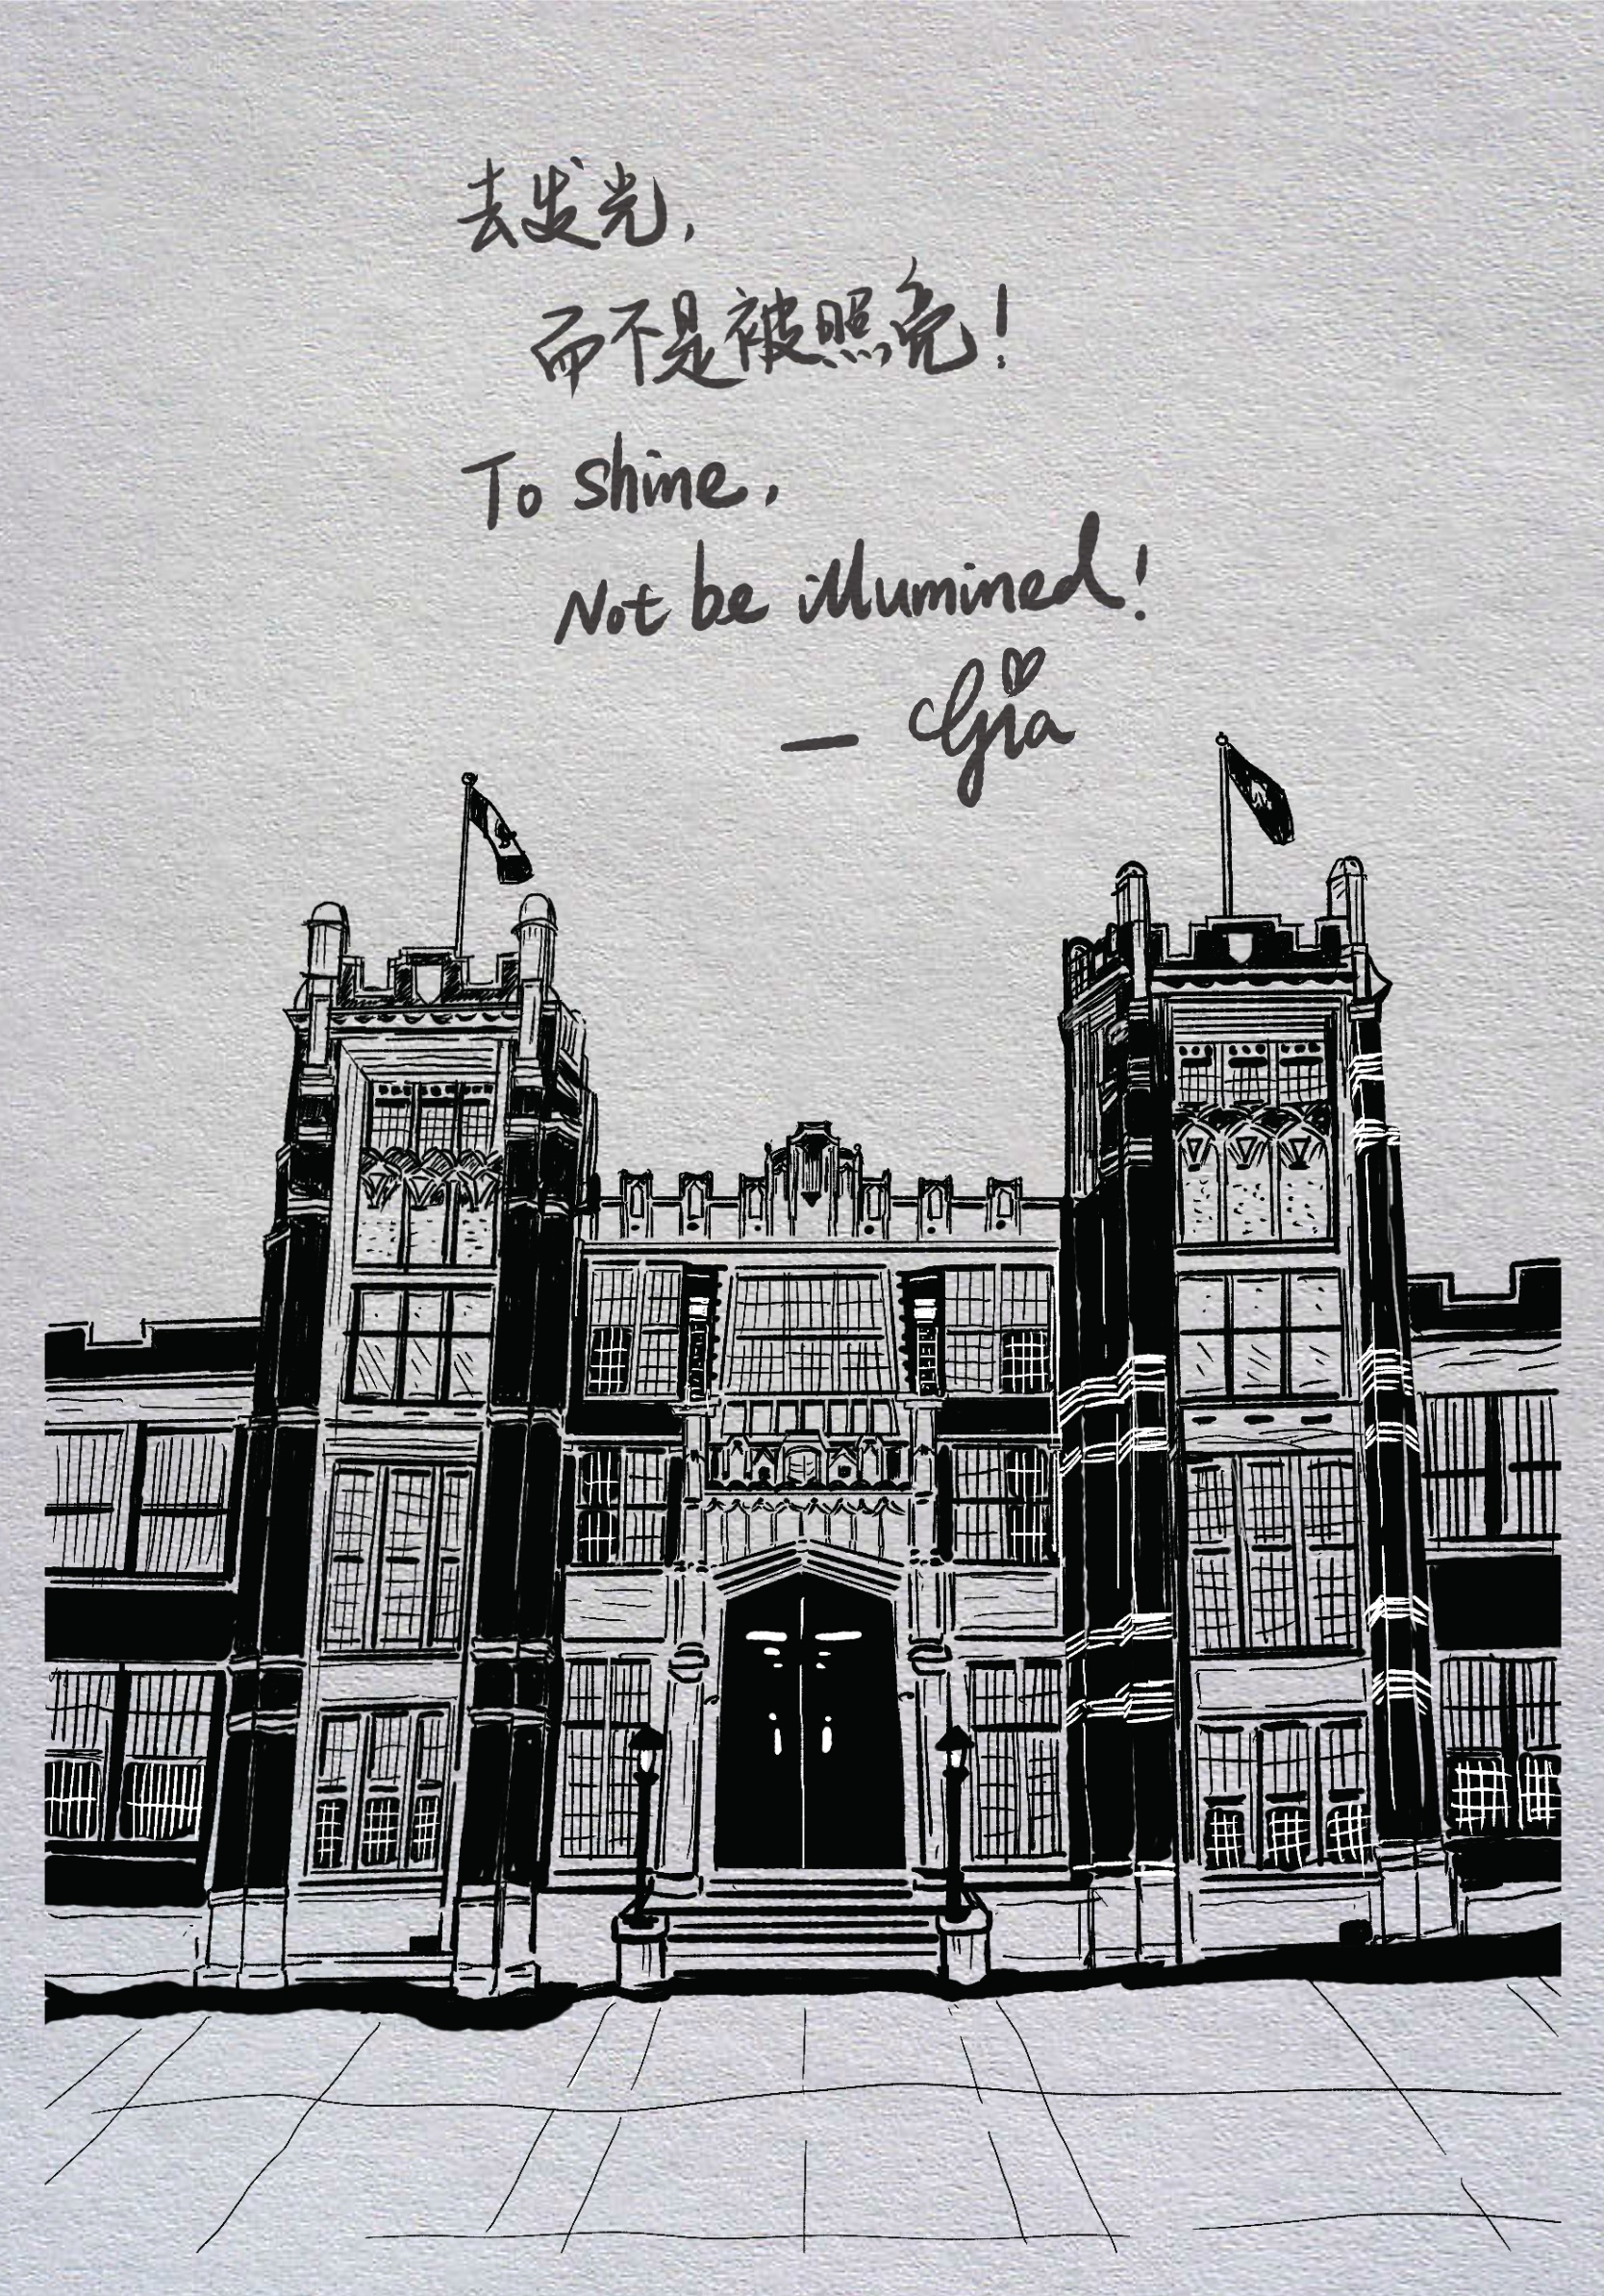 去发光，
而不是被照亮！
To shine,
Not be illumined!
— Gia